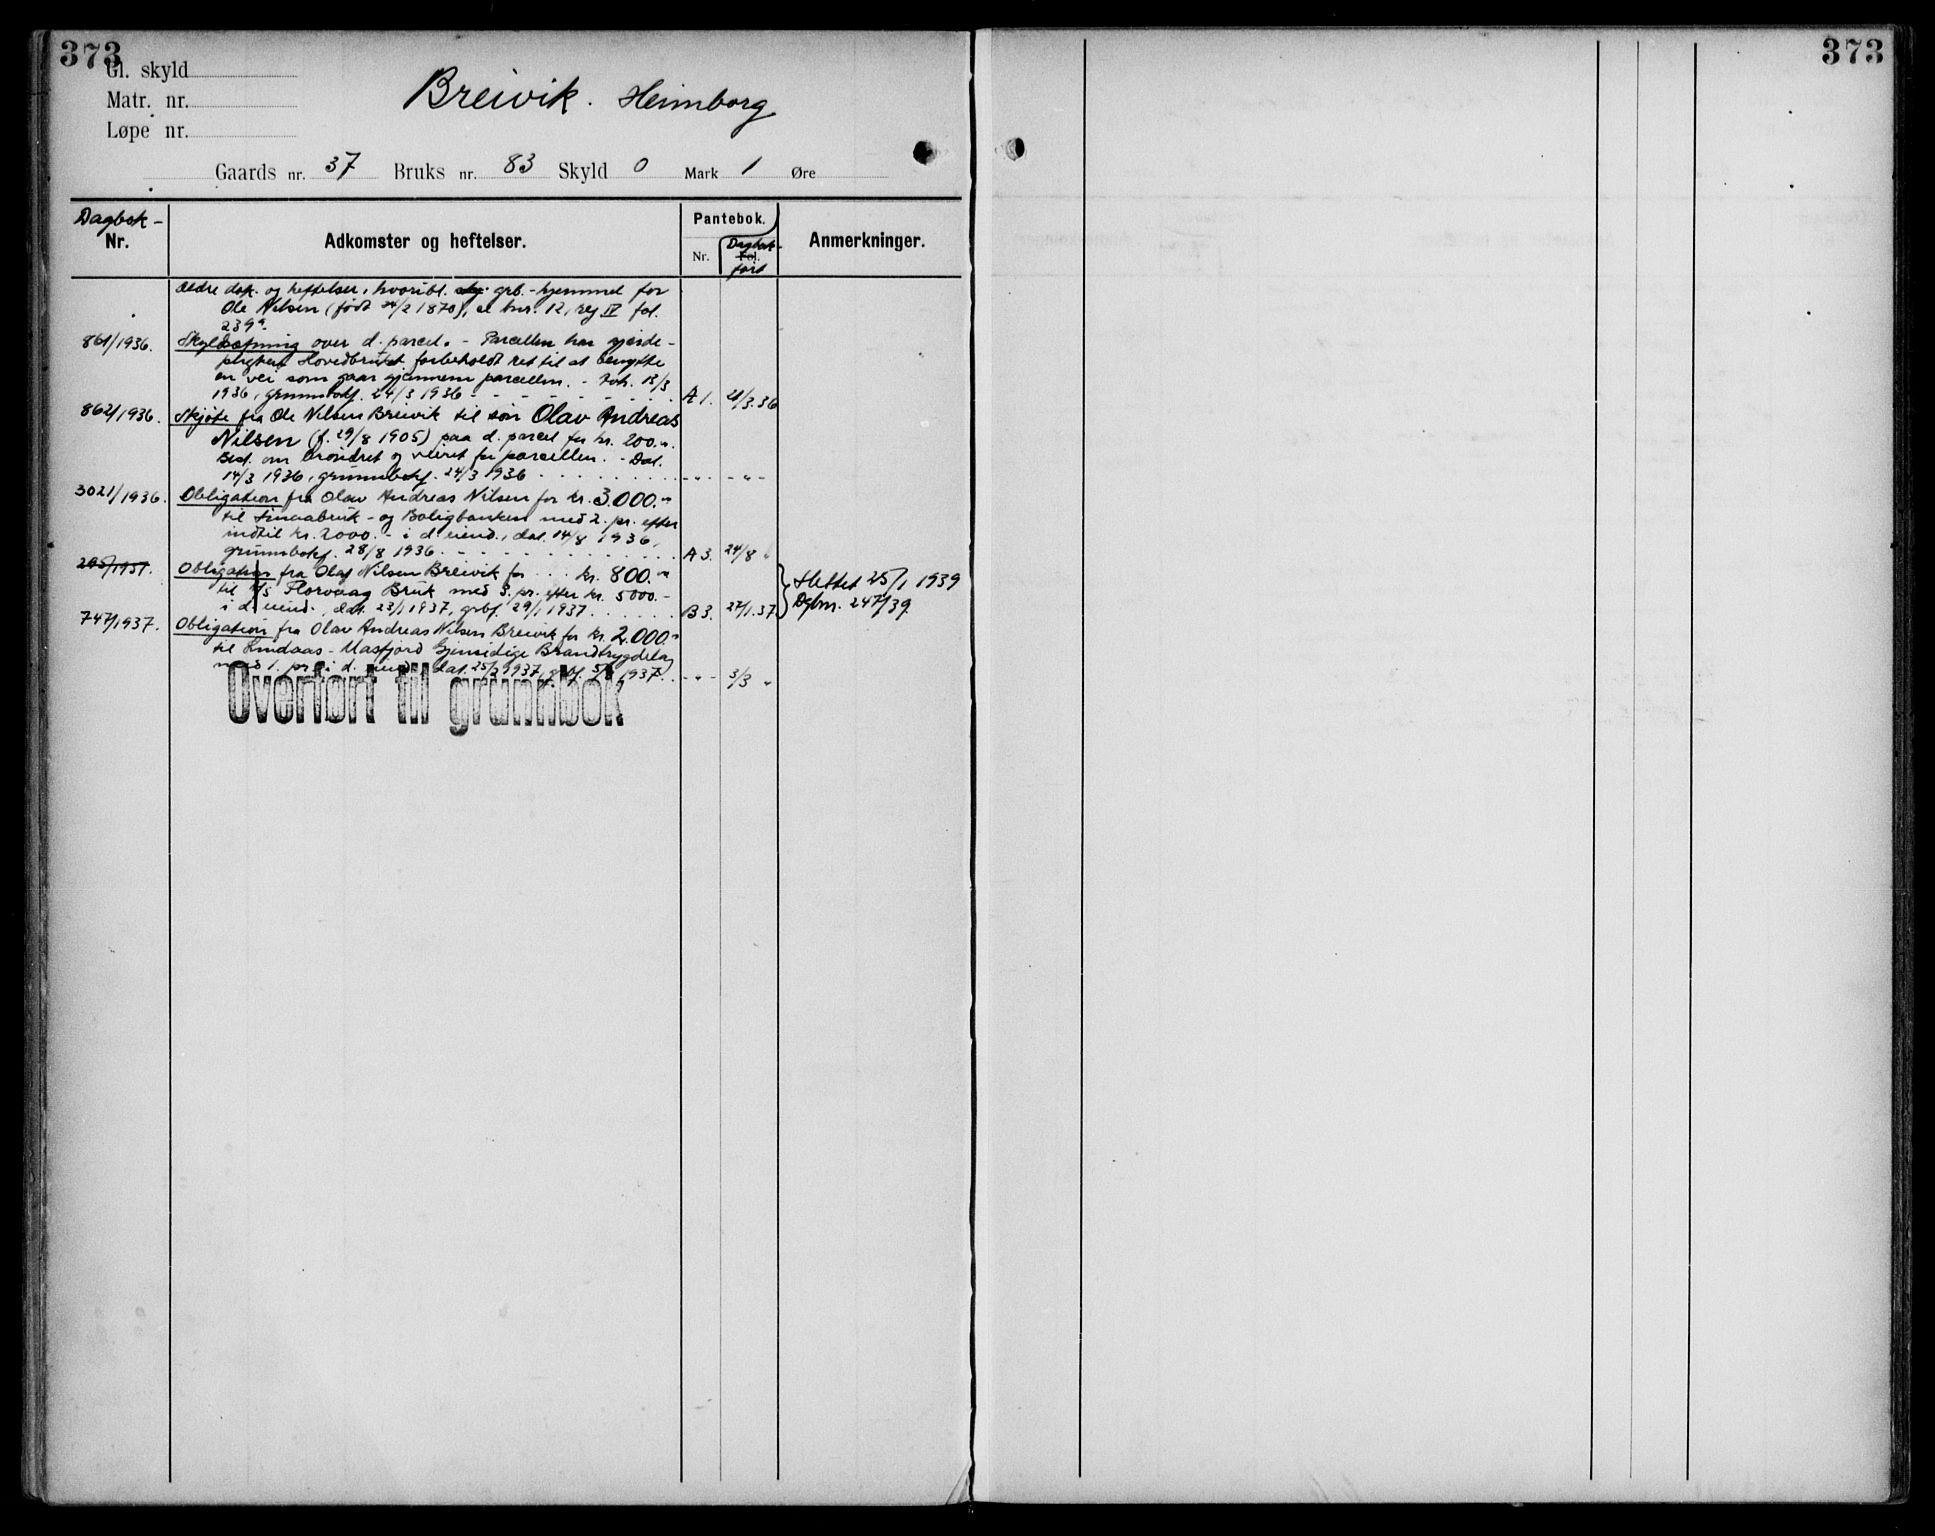 373
Gl. skyld
Matr. nr.
Løpe nr.
Breivik. Heimborg
Gaards nr. 37 Bruks nr. 83 Skyld 0 Mark 1 Øre
Dagbok-
Nr.
Adkomster og heftelser.
Pantebok.
Nr.
Fol.
Dagbok-
ført
Anmerkninger.
Ældre dok. og heftelser, hvoribl. grb.-hjemmel for
Ole Nilsen (født 24/2 1870), se bnr. 12, reg IV fol.
239a.
861/1936. Skylddeling over d. parcel. - Parcellen har gjerde-
pligten. Hovedbruket forbeholdt ret til at benytte
en vei som gaar gjennem parcellen. - Tok. 13/3
1936, grunnbokf. 24/3 1936 A 1. 21/3.36
862/1936. Skjøte fra Ole Nilsen Breivik til søn Olav Andreas
Nilsen (f. 29/8 1905) paa d. parcel for kr. 200.-
Best. om brøndret og veiret for parcellen. - Dat.
14/3 1936, grunnbokf. 24/3 1936 - " - - " -
3021/1936. Obligation fra Olav Andreas Nilsen for kr. 3.000.-
til Smaabruk- og Boligbanken med 2. pr. efter
indtil kr. 2000.- i d. eiend., dat. 14/8 1936,
grunnbokf. 28/8 1936 A 3. 24/8 "
295/1937. Obligation fra Olaf Nilsen Breivik for kr. 800.-
til A/S Florvaag Bruk med 3. pr. efter kr. 5000.-
i d. eiend., dat. 23/1 1937, grbf. 29/1 1937 B 3. 27/1.37
Slettet 25/1 1939
Dgbnr. 247/39.
747/1937. Obligation fra Olav Andreas Nilsen Breivik for kr. 2.000.-
til Lindaas-Masfjord Gjensidige Brandtrygdelag
med 1. pr. i d. eiend. dat. 25/2 1937, grbf. 5/3 1937. - " - 3/3 "
Overført til grunnbok
373